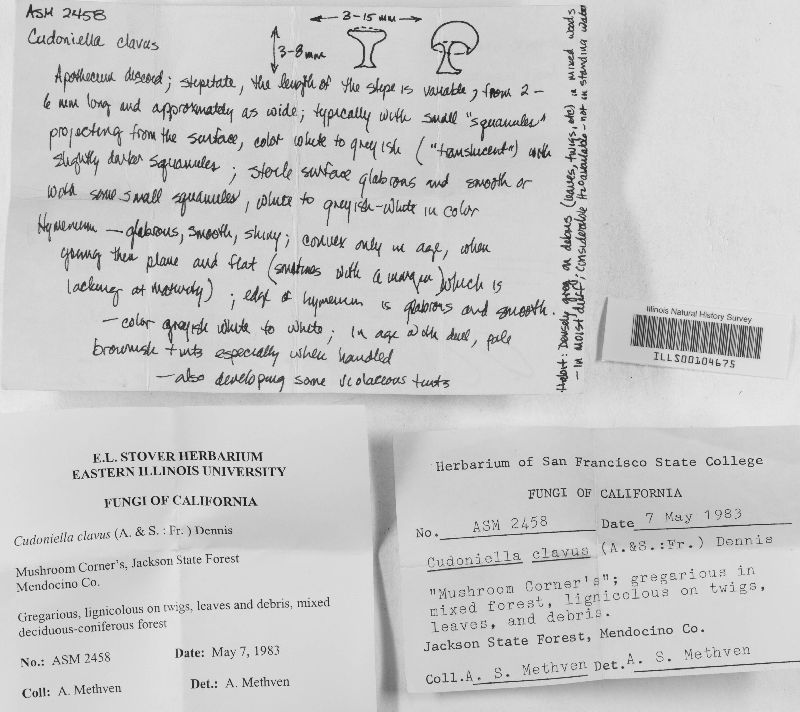 ASM 2458
Cudoniella clavus
3-15 mm
3-8 mm
Apothecium discoid; stipitate, the length of the stipe is variable, from 2-
6 mm long and approximately as wide; typically with small "squamules"
projecting from the surface, color white to greyish ("translucent") with
slightly darker squamules; sterile surface glabrous and smooth or
with some small squamules, white to greyish-white in color
Hymenium — glabrous, smooth, shiny; convex only in age, when
young then plane and flat (sometimes with a margin) which is
lacking at maturity); edge of hymenium is glabrous and smooth.
— color greyish white to white; in age with dull, pale
brownish tints especially when handled
— also developing some violaceous tints
Habit: Densely greg on debris (leaves, twigs, etc) in mixed woods
- in moist duff; considerable H2O available - not in standing water
Illinois Natural History Survey
ILLS00104675
E.L. STOVER HERBARIUM
EASTERN ILLINOIS UNIVERSITY
FUNGI OF CALIFORNIA
Cudoniella clavus (A. & S. : Fr. ) Dennis
Mushroom Corner's, Jackson State Forest
Mendocino Co.
Gregarious, lignicolous on twigs, leaves and debris, mixed
deciduous-coniferous forest
No.: ASM 2458 Date: May 7, 1983
Coll: A. Methven Det.: A. Methven
Herbarium of San Francisco State College
FUNGI OF CALIFORNIA
No. ASM 2458 Date 7 May 1983
Cudoniella clavus (A.&S.:Fr.) Dennis
"Mushroom Corner's"; gregarious in
mixed forest, lignicolous on twigs,
leaves, and debris.
Jackson State Forest, Mendocino Co.
Coll. A. S. Methven Det. A. S. Methven